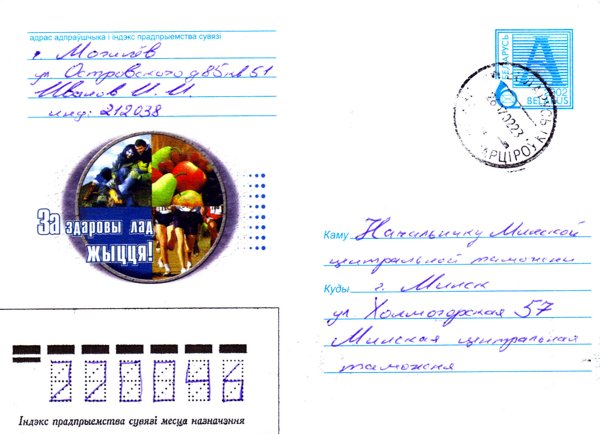 адрас адпраўшчыка і індэкс прадпрыемства сувязі
г. Могилёв
ул Островского д85 кв 51
Иванов И. И.
инд: 212038
За здаровы лад
жыцця!
БЕЛАРУСЬ
A
2002
BELARUS
Каму Начальнику Минской
центральной таможни
Куды г. Минск
ул Холмогорская 57
Минская центральная
таможня
220046
Індэкс прадпрыемства сувязі месца назначэння